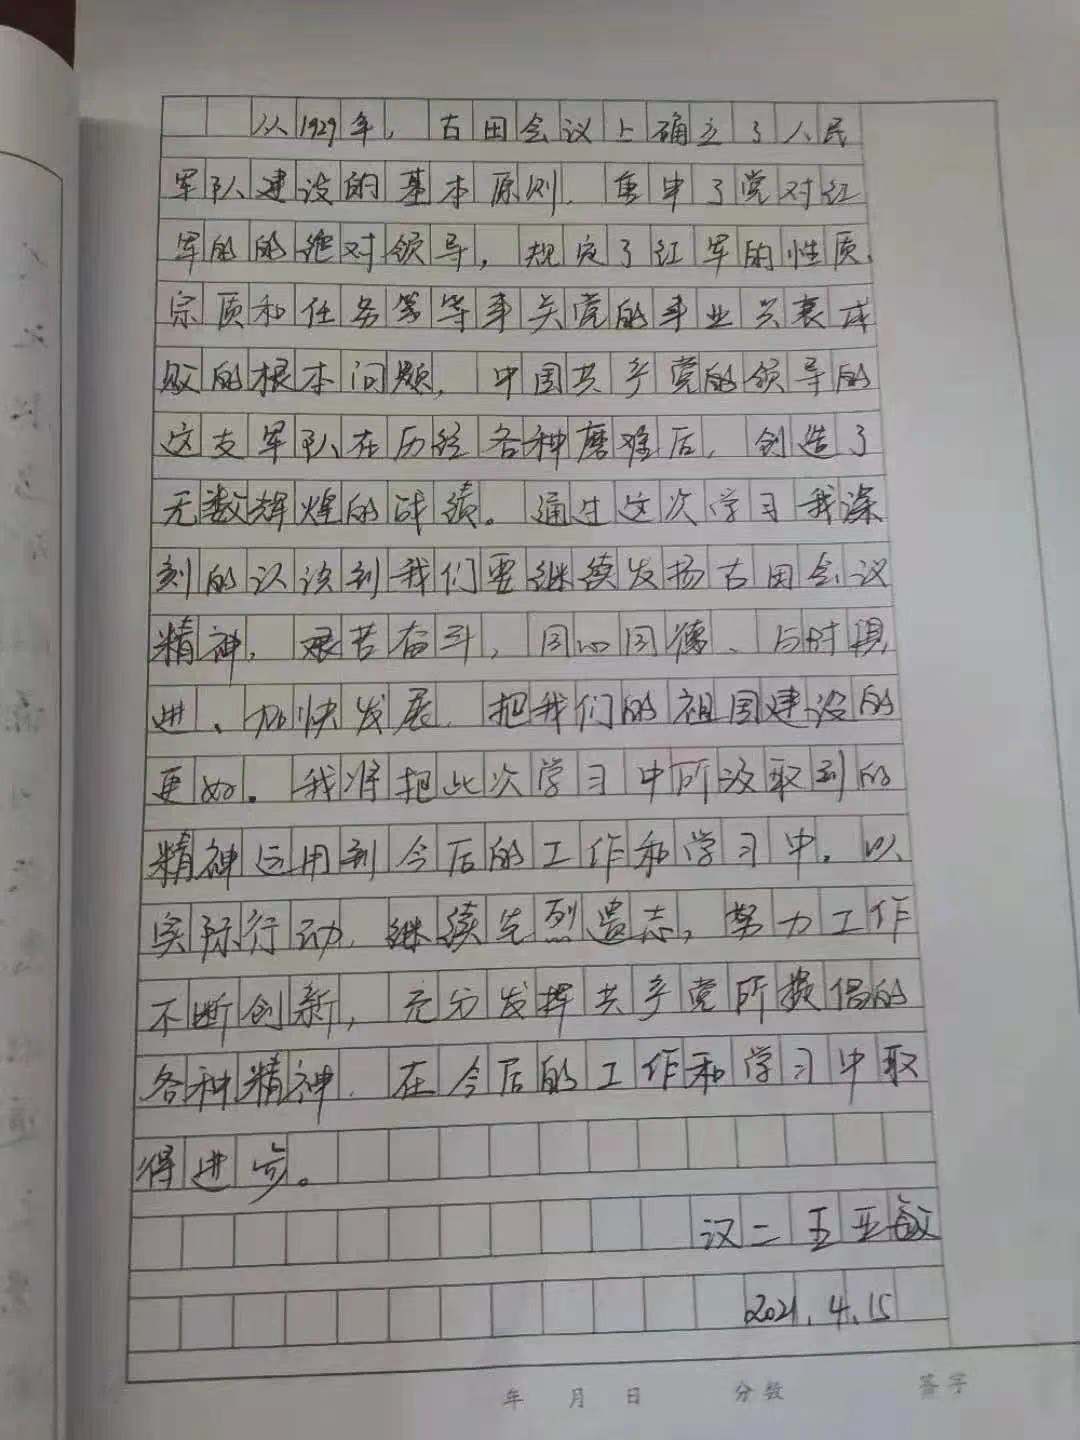 从1929年，古田会议上确立了人民
军队建设的基本原则，重申了党对红
军的的绝对领导，规定了红军的性质、
宗质和任务等等事关党的事业兴衰成
败的根本问题，中国共产党的领导的
这支军队在历经各种磨难后，创造了
无数辉煌的战绩。通过这次学习我深
刻的认识到我们要继续发扬古田会议
精神，艰苦奋斗，同心同德、与时俱
进、加快发展，把我们的祖国建设的
更好。我将把此次学习中所汲取到的
精神运用到今后的工作和学习中，以
实际行动，继续先烈遗志，努力工作
不断创新，充分发挥共产党所提倡的
各种精神，在今后的工作和学习中取
得进步。
汉二 王亚敏
2021.4.15
年 月 日 分数 签字